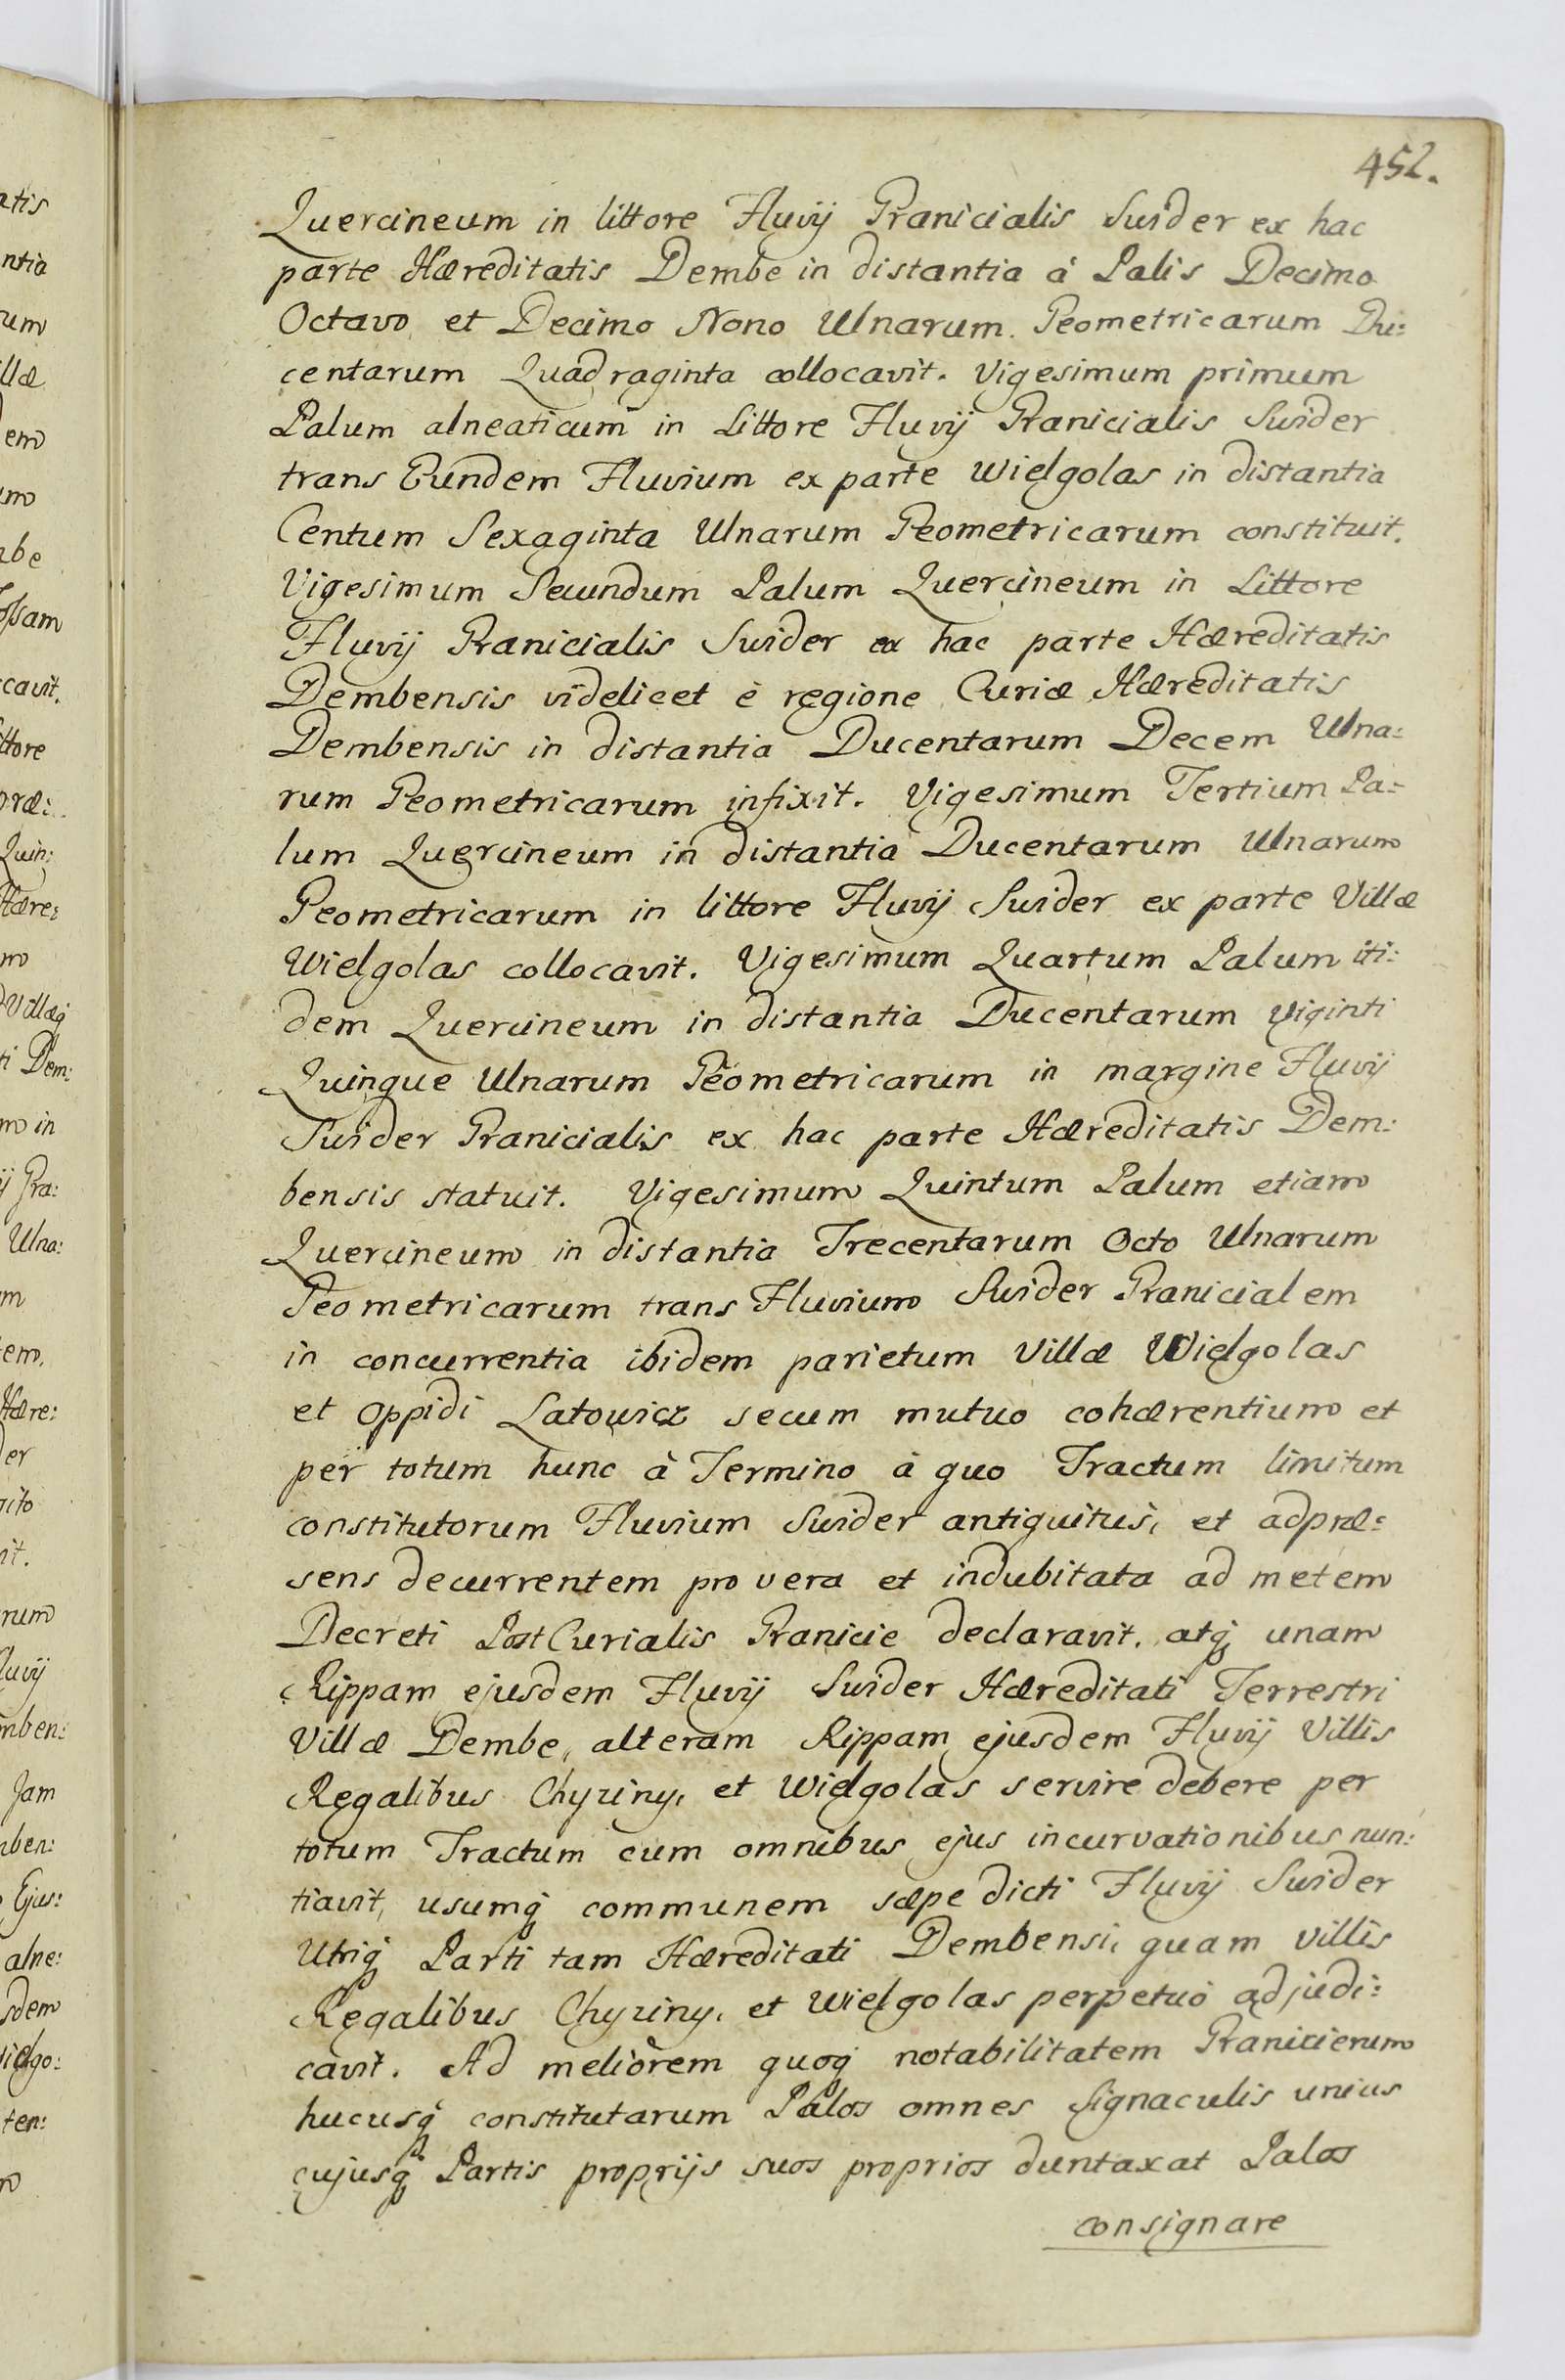 452.
Quercineum in littore Fluvij Granicialis Swider ex hac
parte Hæreditatis Dembe in distantia à Palis Decimo
Octavo et Decimo Nono Ulnarum Geometricarum Du:
centarum Quadraginta collocavit. Vigesimum primum
Palum alneaticum in Littore Fluvij Granicialis Swider
trans Eundem Fluvium ex parte Wielgolas in distantia
Centum Sexaginta Ulnarum Geometricarum constituit.
Vigesimum Secundum Palum Quercineum in Littore
Fluvij Granicialis Swider ex hac parte Hæreditatis
Dembensis videlicet è regione Curiæ Hæreditatis
Dembensis in distantia Ducentarum Decem Ulna:
rum Geometricarum infixit. Vigesimum Tertium Pa:
lum Quercineum in distantia Ducentarum Ulnarum
Geometricarum in littore Fluvij Swider ex parte Villæ
Wielgolas collocavit. Vigesimum Quartum Palum iti:
dem Quercineum in distantia Ducentarum Viginti
Quinque Ulnarum Geometricarum in margine Fluvij
Swider Granicialis ex hac parte Hæreditatis Dem:
bensis statuit. Vigesimum Quintum Palum etiam
Quercineum in distantia Trecentarum Octo Ulnarum
Geometricarum trans Fluvium Swider Granicialem
in concurrentia ibidem parietum Villæ Wielgolas
et Oppidi Latowicz secum mutuo cohærentium et
per totum hunc à Termino à quo Tractum limitum
constitutorum Fluvium Swider antiquitus, et adpræ:
sens decurrentem pro vera et indubitata ad metem
Decreti PostCurialis Granicie declaravit. atq́ unam
Rippam ejusdem Fluvij Swider Hæreditati Terrestri
Villæ Dembe, alteram Rippam ejusdem Fluvij Villis
Regalibus Chyziny, et Wielgolas servire debere per
totum Tractum cum omnibus ejus incurvationibus nun:
tiavit, usumq́ communem sæpe dicti Fluvij Swider
Utriq́ Parti tam Hæreditati Dembensi, quam Villis
Regalibus Chyziny, et Wielgolas perpetuò adjudi:
cavit. Ad meliorem quoq́ notabilitatem Granicierum
hucusq́ constitutarum Palos omnes Signaculis unius
cujusq́ Partis proprijs suos proprios duntaxat Palos
consignare